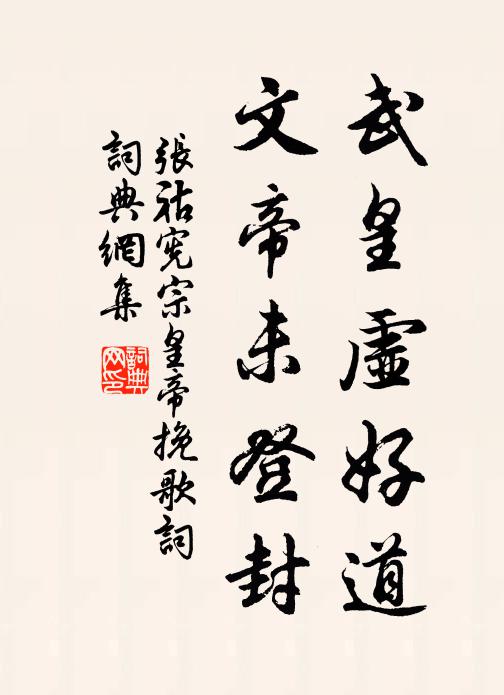 武皇虛好道
文帝未登封
張祜宪宗皇帝挽歌詞
詞典網集
詞典网印